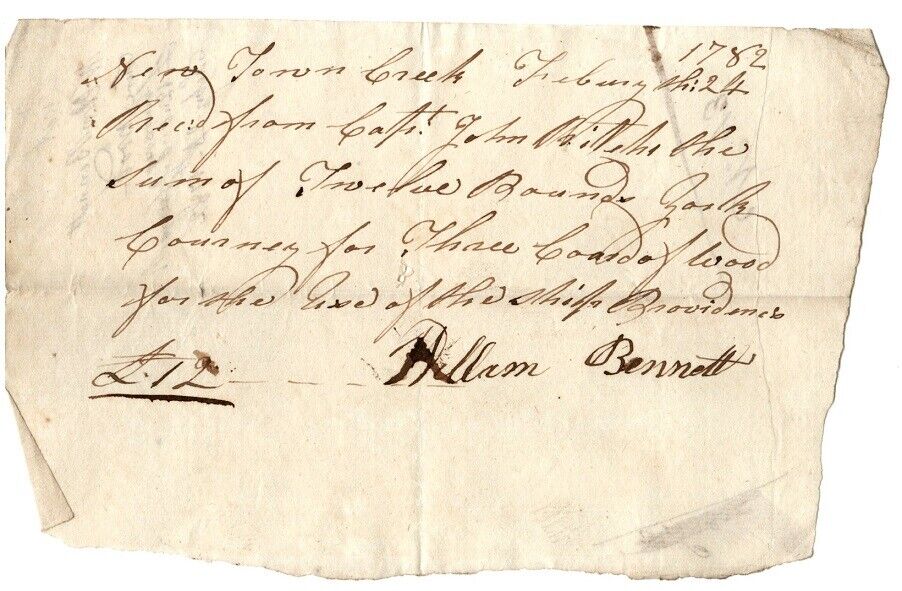 1782
New Town Creek Frebury th: 24
Rec:d from Capt. John Ritchi the
Sum of Twelve Pounds York
Courney for Three Coard of Wood
for the Use of the Ship Providence
£.12 - - - - William Bennett